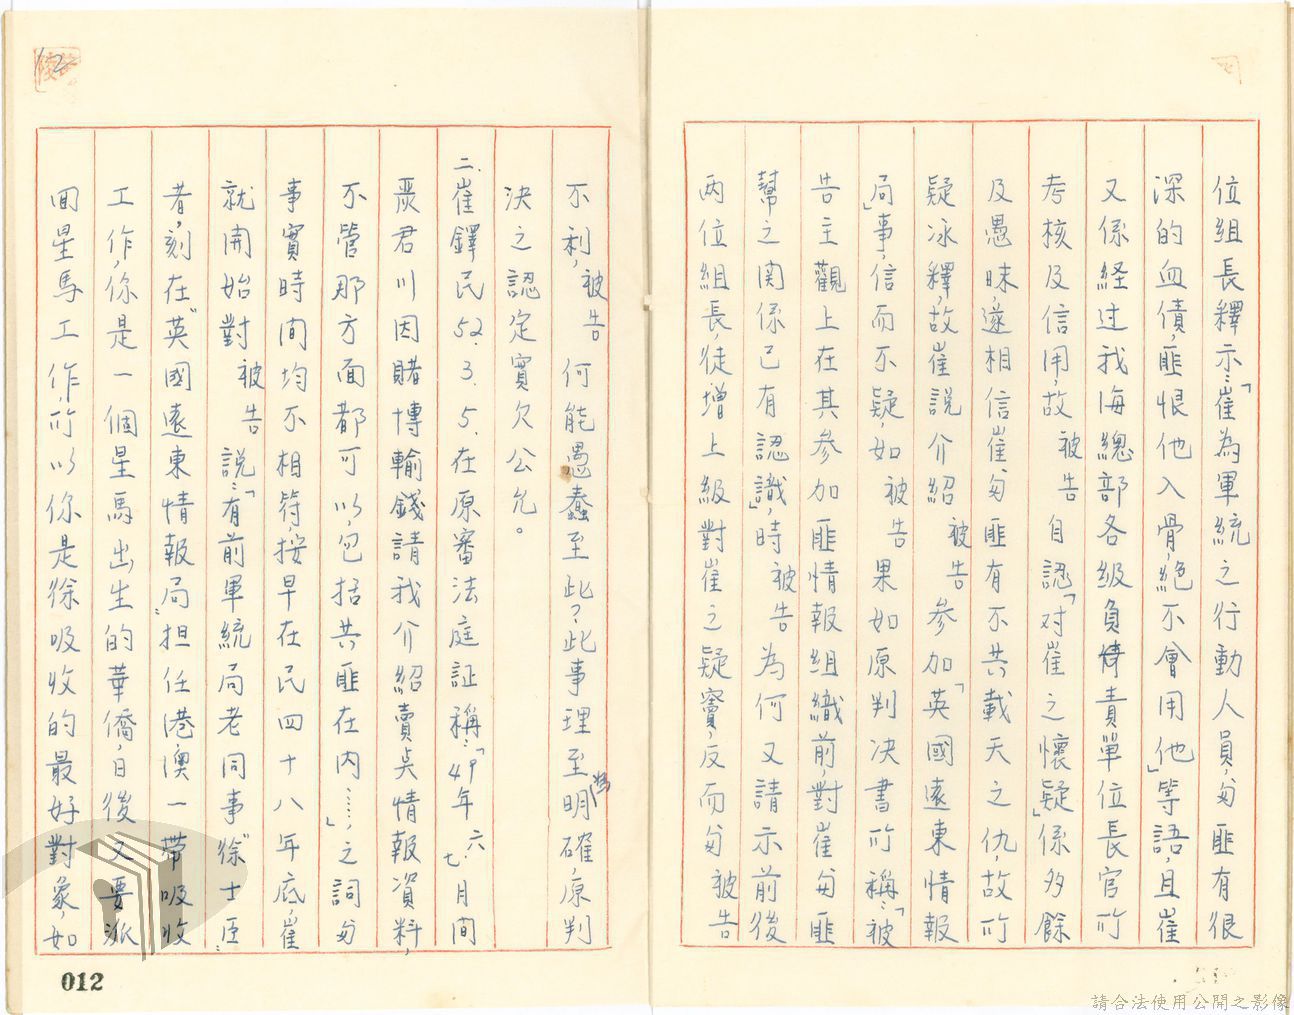 位組長釋示:「崔為軍統之行動人員,匁匪有很
深的血債,匪恨他入骨,絕不會用他」等語,且崔
又係経过我海總部各級負責單位長官所
考核及信用,故被告自認「对崔之懷疑」係多餘
及愚昧,遂相信崔匁匪有不共載天之仇,故所
疑冰釋,故崔説介紹被告参加「英國遠東情報
局」事,信而不疑,如被告果如原判决書所稱:「被
告主觀上在其参加匪情報組織前,對崔匁匪
幫之関係已有認識」,時被告為何又請示前後
两位組長,徒增上級對崔之疑竇,反而匁被告
不利,被告何能愚蠢至此?此事理至為明確,原判
決之認定實欠公允。
二、崔鐸民52.3.5.在原審法庭証稱:「49年六.七月間
聚君川因賭博輸錢請我介紹賣吳情報資料,
不管那方面都可以,包括共匪在内……」,之詞匁
事實時间均不相符,按早在民四十八年底,崔
就開始對被告説:「有前軍統局老同事“徐士臣”
者,刻在“英國遠東情報局”担任港澳一帶吸收
工作,你是一個星馬出生的華僑,日後又要派
回星馬工作,所以你是徐吸收的最好對象,如
12
012
請合法使用公開之影像